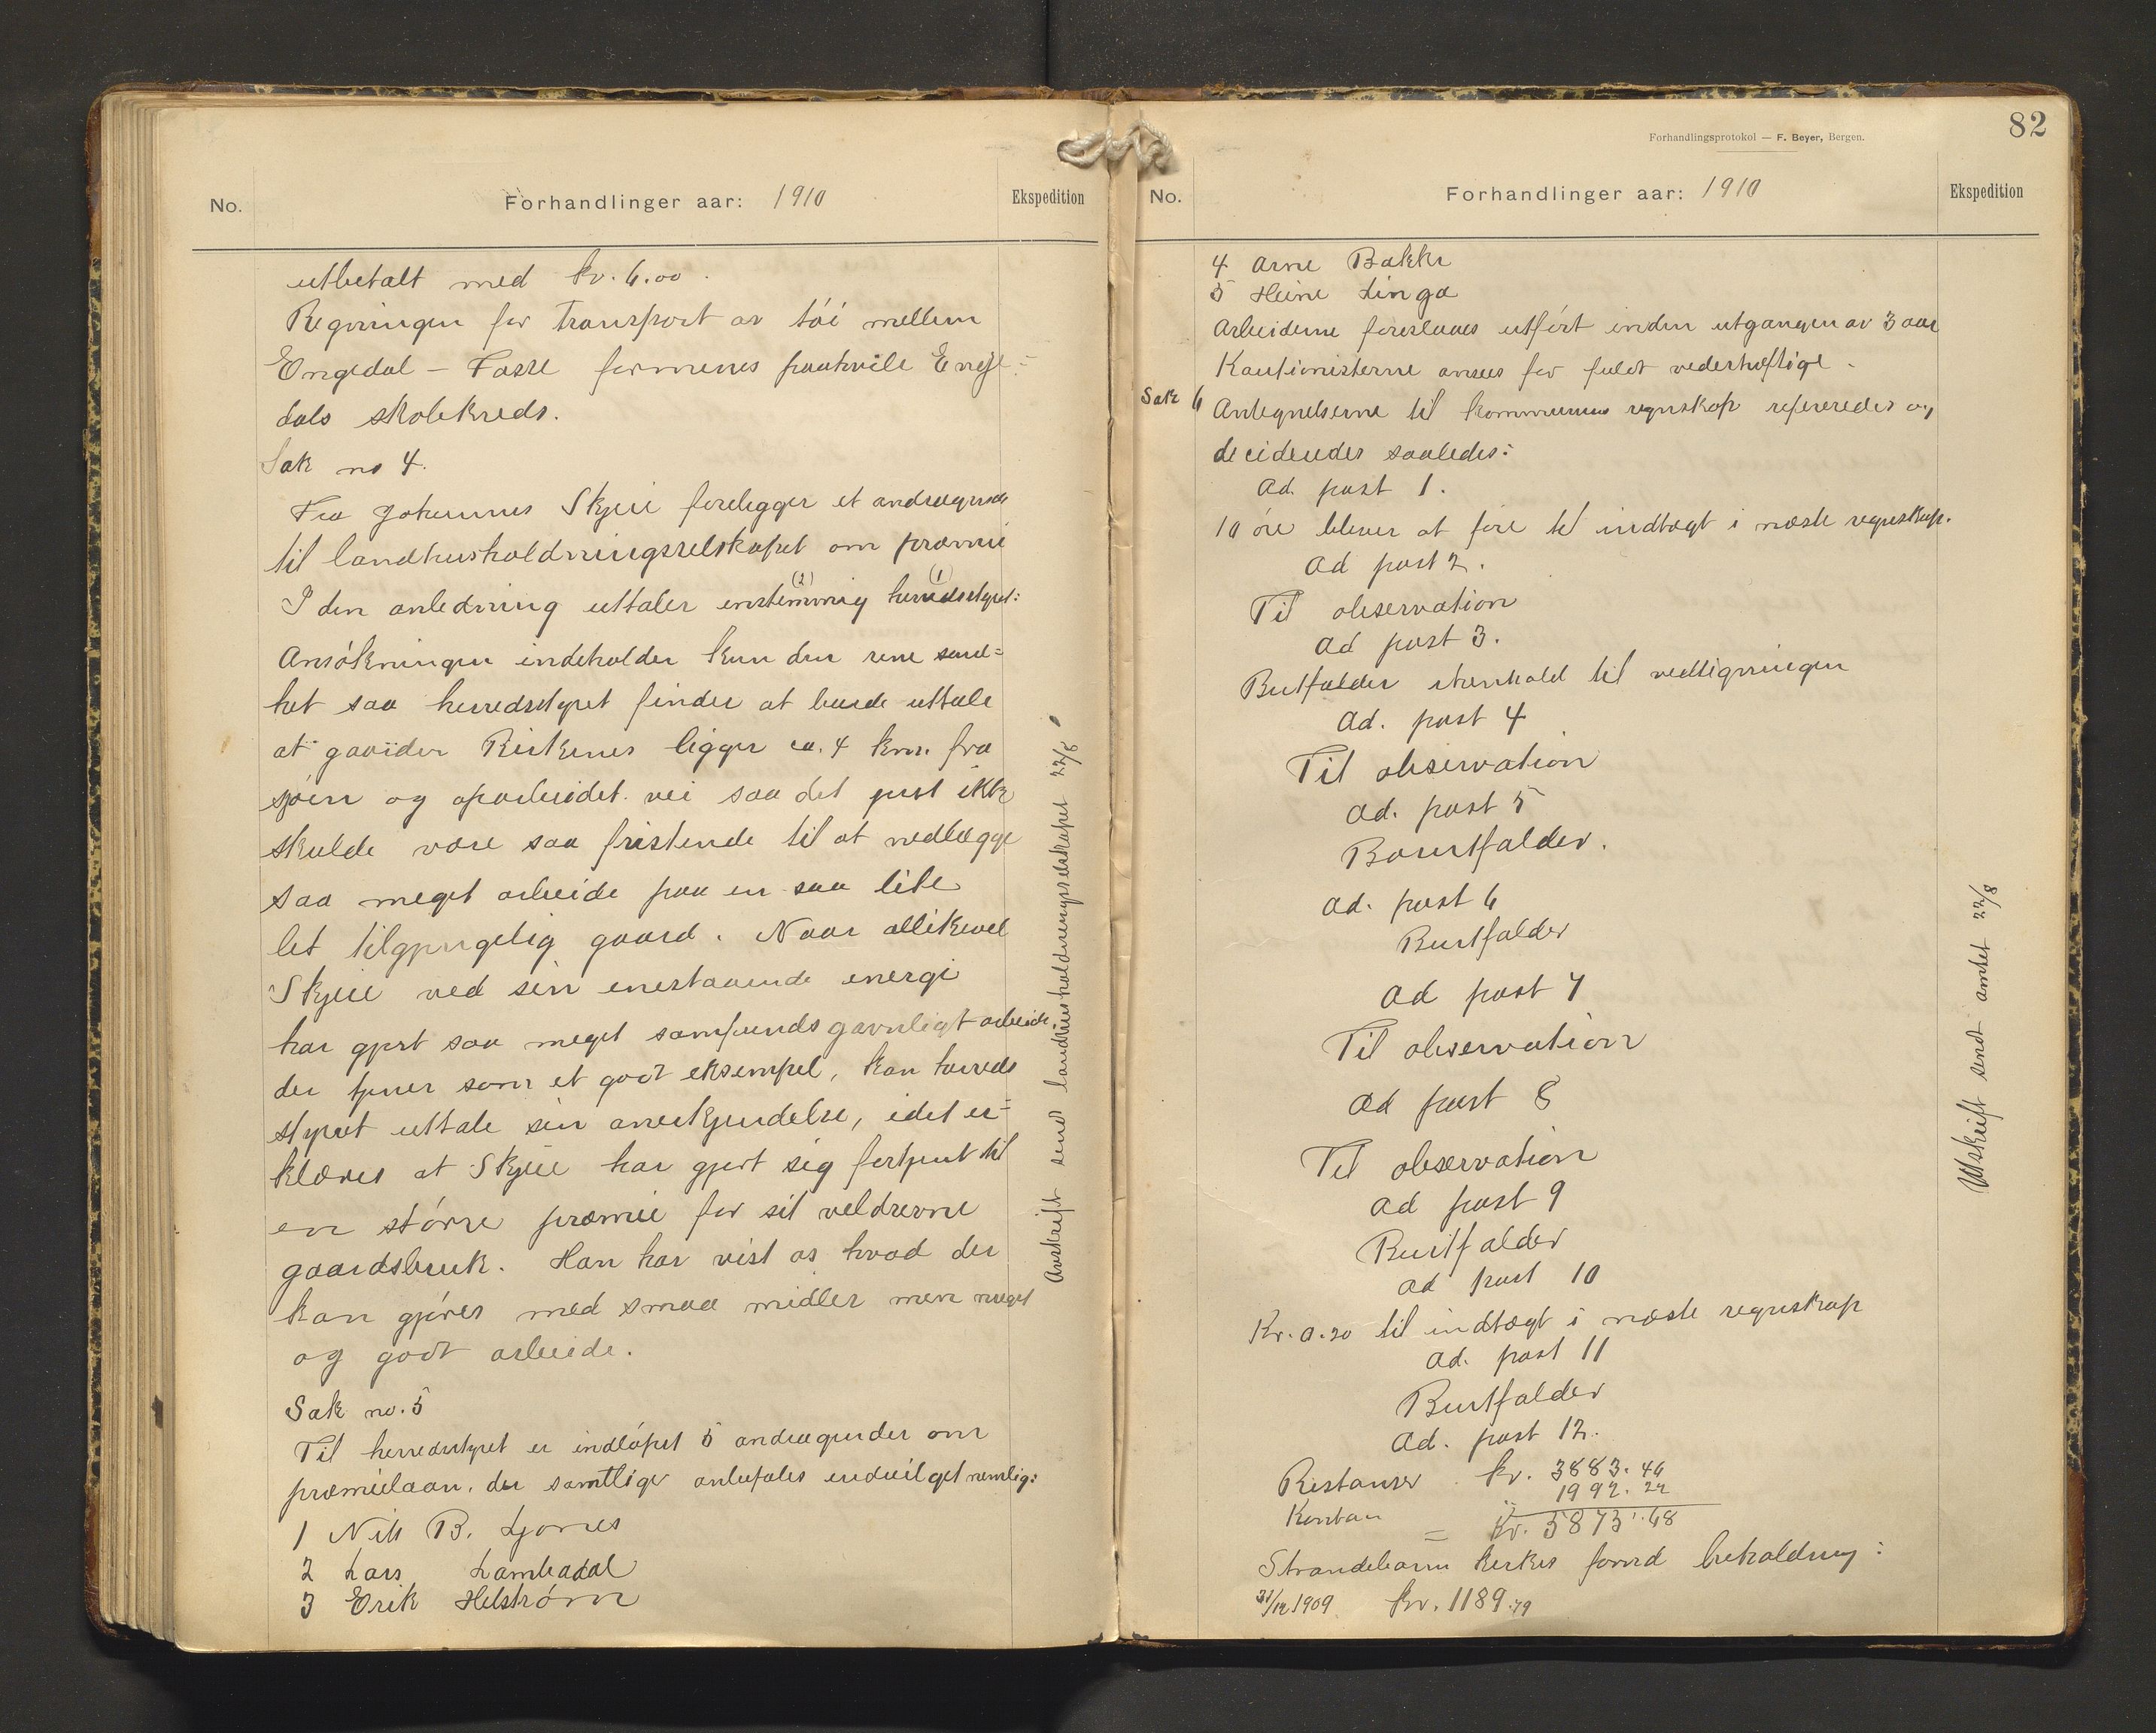 No.
Forhandlinger aar: 1910
Ekspedition
utbetalt med kr. 6.00.
Regningen for transport av tøi mellem
Engedal – Fosse formenes paahvile Enge-
dals skolekreds.
Sak no 4.
Fra Johannes Skjeie foreligger et andragende
til landhusholdningsselskapet om præmie
I den anledning uttaler enstemmig (2) herredsstyret (1):
Ansøkningen indeholder kun den rene sand=
het saa herredsstyret finder at burde uttale
at gaarden Birkenes ligger ca. 4 km. fra
sjøen og oparbeidet vei saa det just ikke
skulde være saa fristende til at nedlægge
saa meget arbeide paa en saa lite
let tilgjengelig gaard. Naar allikevel
Skjeie ved sin enestaaende energi
har gjort saa meget samfundsgavnligt arbeide,
der tjener som et godt eksempel, kan herreds
styret uttale sin anerkjendelse, idet er=
klæres at Skjeie har gjort sig fortjent til
en større præmie for sit veldrevne
gaardsbruk. Han har vist os hvad der
kan gjøres med smaa midler men meget
og godt arbeide.
Sak no. 5
Til herredsstyret er indløpet 5 andragender om
præmielaan, der samtlige anbefales indvilget nemlig:
1 Nils B. Ljones
2 Lars Lambadal
3 Erik Helstrøm
Avskrift sendt landhusholdningsselskapet 22/8
82
Forhandlingsprotokol — F. Beyer, Bergen.
No.
Forhandlinger aar: 1910
Ekspedition
4 Arne Bakke
5 Heine Linga
Arbeiderne foreslaaes utført inden utgangen av 3 aar
Kautionisterne ansees for fuldt vederhæftige.
Sak 6
Antegnelserne til kommunens regnskap refereredes og
decideredes saaledes:
Ad. post 1.
10 øre bliver at føre til indtægt i næste regnskap.
Ad post 2.
Til observation
Ad post 3.
Bortfalder i henhold til vedtegningen
Ad. post 4
Til observation
Ad. post 5
Bortfalder.
Ad. post 6
Bortfalder
Ad post 7
Til observation
Ad post 8
Til observation
Ad post 9
Bortfalder
Ad post 10
Kr. 0.20 til indtægt i næste regnskap
Ad. post 11
Bortfalder
Ad. post 12.
Restanser kr. 3883.46
Kontan " 1992.22
= Kr. 5873.68
Strandebarm kirkes fond beholdning:
31/12 1909 kr. 1189.79
Utskrift sendt amtet 22/8